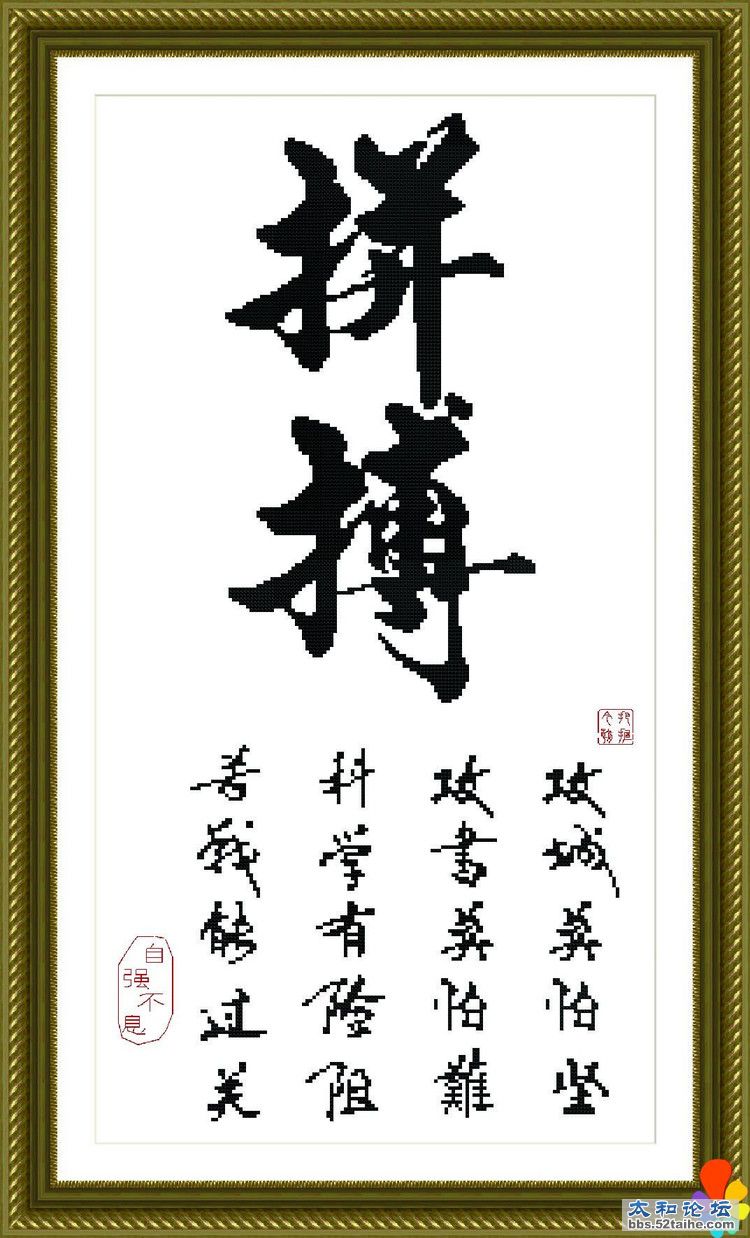 拼搏
攻城莫怕坚
攻書莫怕難
科学有险阻
苦战能过关
自强不息
太和论坛
bbs.52taihe.com